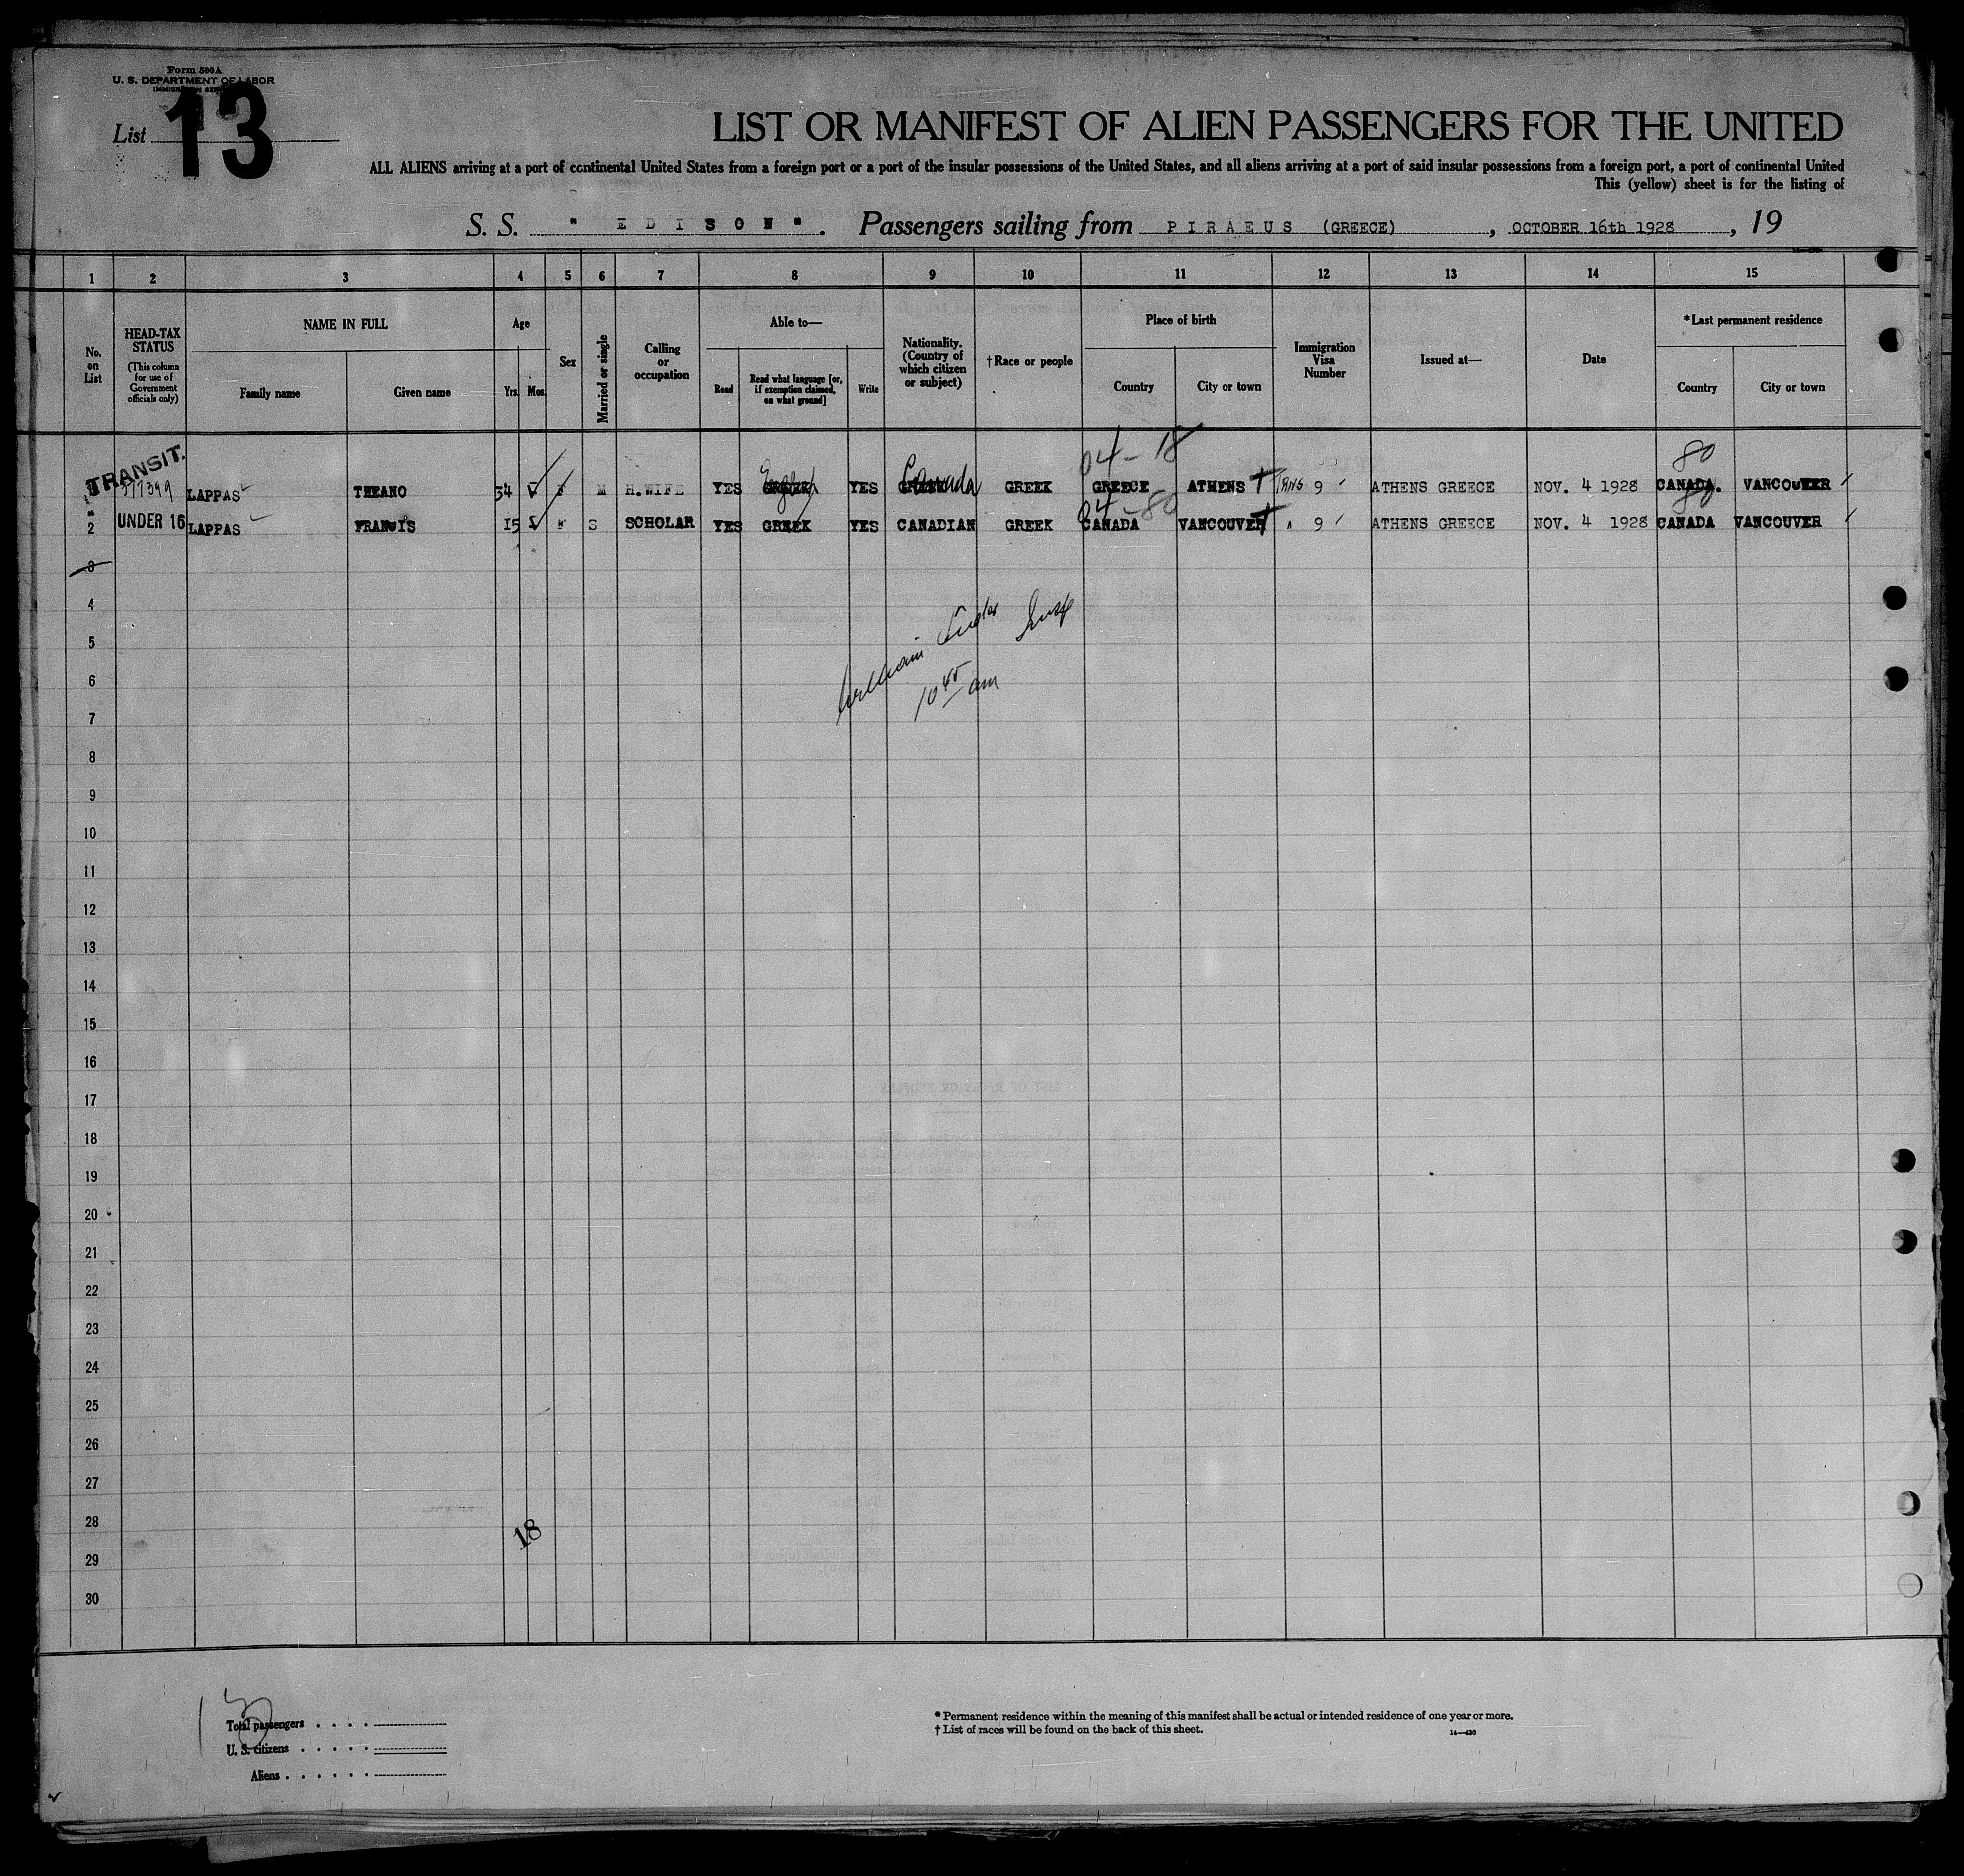 Form 500A
U. S. DEPARTMENT OF LABOR
IMMIGRATION SERVICE
List 13
LIST OR MANIFEST OF ALIEN PASSENGERS FOR THE UNITED
ALL ALIENS arriving at a port of continental United States from a foreign port or a port of the insular possessions of the United States, and all aliens arriving at a port of said insular possessions from a foreign port, a port of continental United
This (yellow) sheet is for the listing of
S. S. "EDISON". Passengers sailing from PIRAEUS (GREECE), OCTOBER 16th 1928, 19
1 2 3 4 5 6 7 8 9 10 11 12 13 14 15
No. on List
HEAD-TAX STATUS
(This column for use of Government officials only)
NAME IN FULL
Family name Given name
Age
Yrs. Mos.
Sex
Married or single
Calling or occupation
Able to—
Read
Read what language [or, if exemption claimed, on what ground]
Write
Nationality. (Country of which citizen or subject)
†Race or people
Place of birth
Country City or town
Immigration Visa Number
Issued at—
Date
*Last permanent residence
Country City or town
04-18 80
TRANSIT. 377399 LAPPAS THEANO 34 F M H.WIFE YES GREEK YES Canada GREEK GREECE ATHENS 9 ATHENS GREECE NOV. 4 1928 CANADA. VANCOUVER
04-80 80
2 UNDER 16 LAPPAS FRANCIS 15 S SCHOLAR YES GREEK YES CANADIAN GREEK CANADA VANCOUVER 9 ATHENS GREECE NOV. 4 1928 CANADA VANCOUVER
3
4
5
6
William Insp
10 45 am
7
8
9
10
11
12
13
14
15
16
17
18
19
20
21
22
23
24
25
26
27
28
18
29
30
13
Total passengers
U. S. citizens
Aliens
* Permanent residence within the meaning of this manifest shall be actual or intended residence of one year or more.
† List of races will be found on the back of this sheet. 14—430